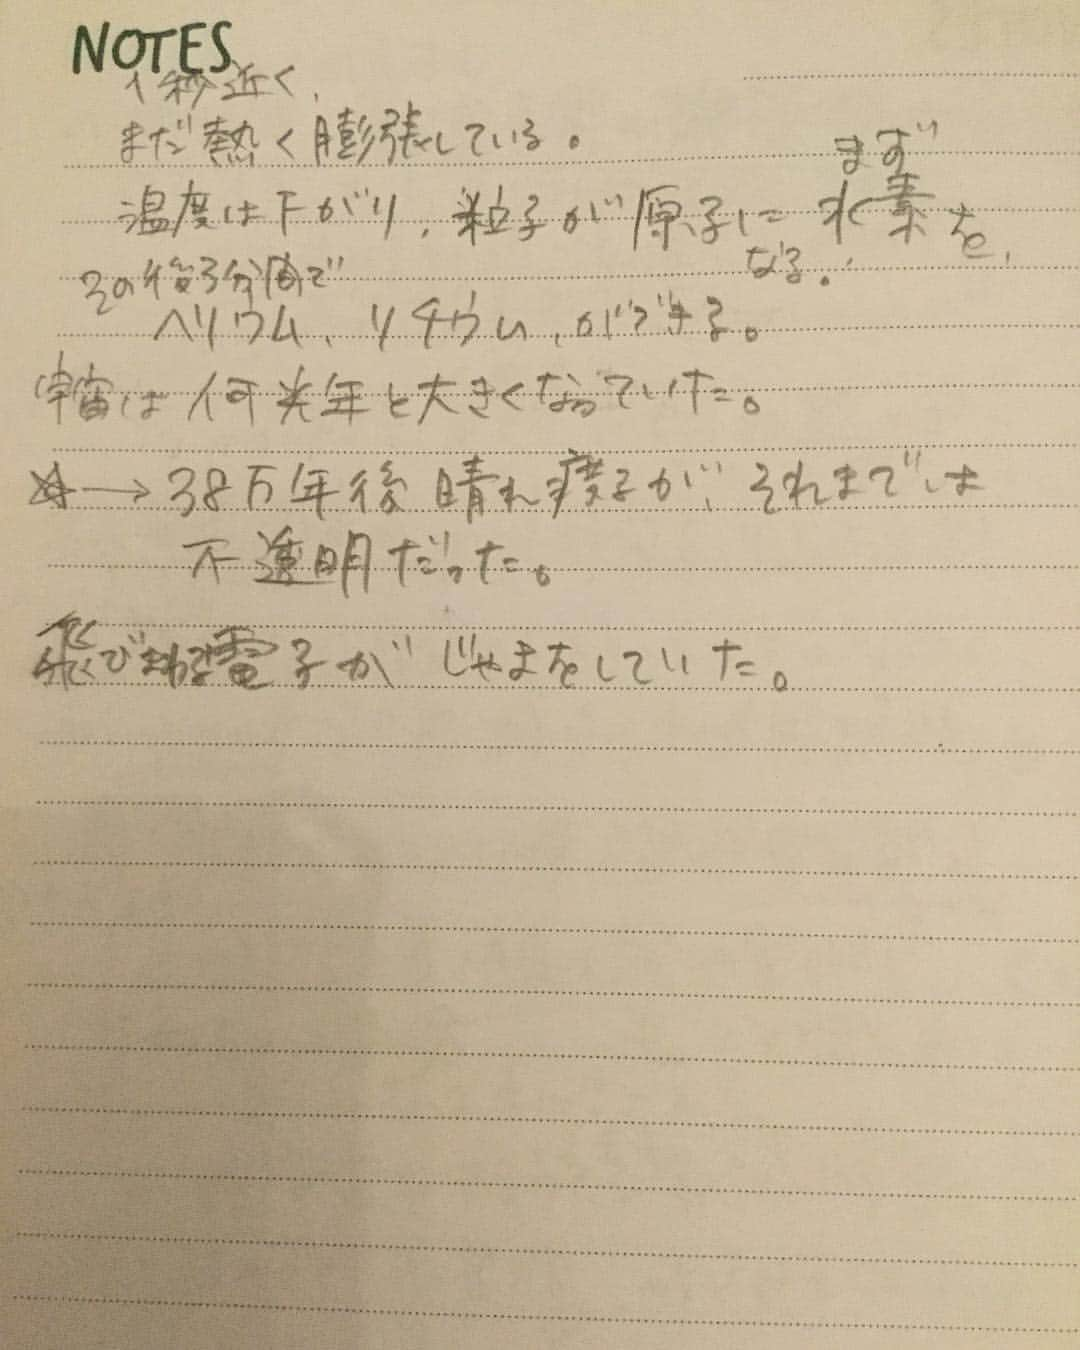 NOTES
1秒近く,
まだ熱く膨張している。
まず
温度は下がり、粒子が原子に 水素を,
なる。
その後3分間で
ヘリウム、リチウム、ができる。
宇宙は何光年と大きくなっていた。
☆→38万年後 晴れ 子が、それまでは
不透明だった。
飛びまわる電子がじゃまをしていた。